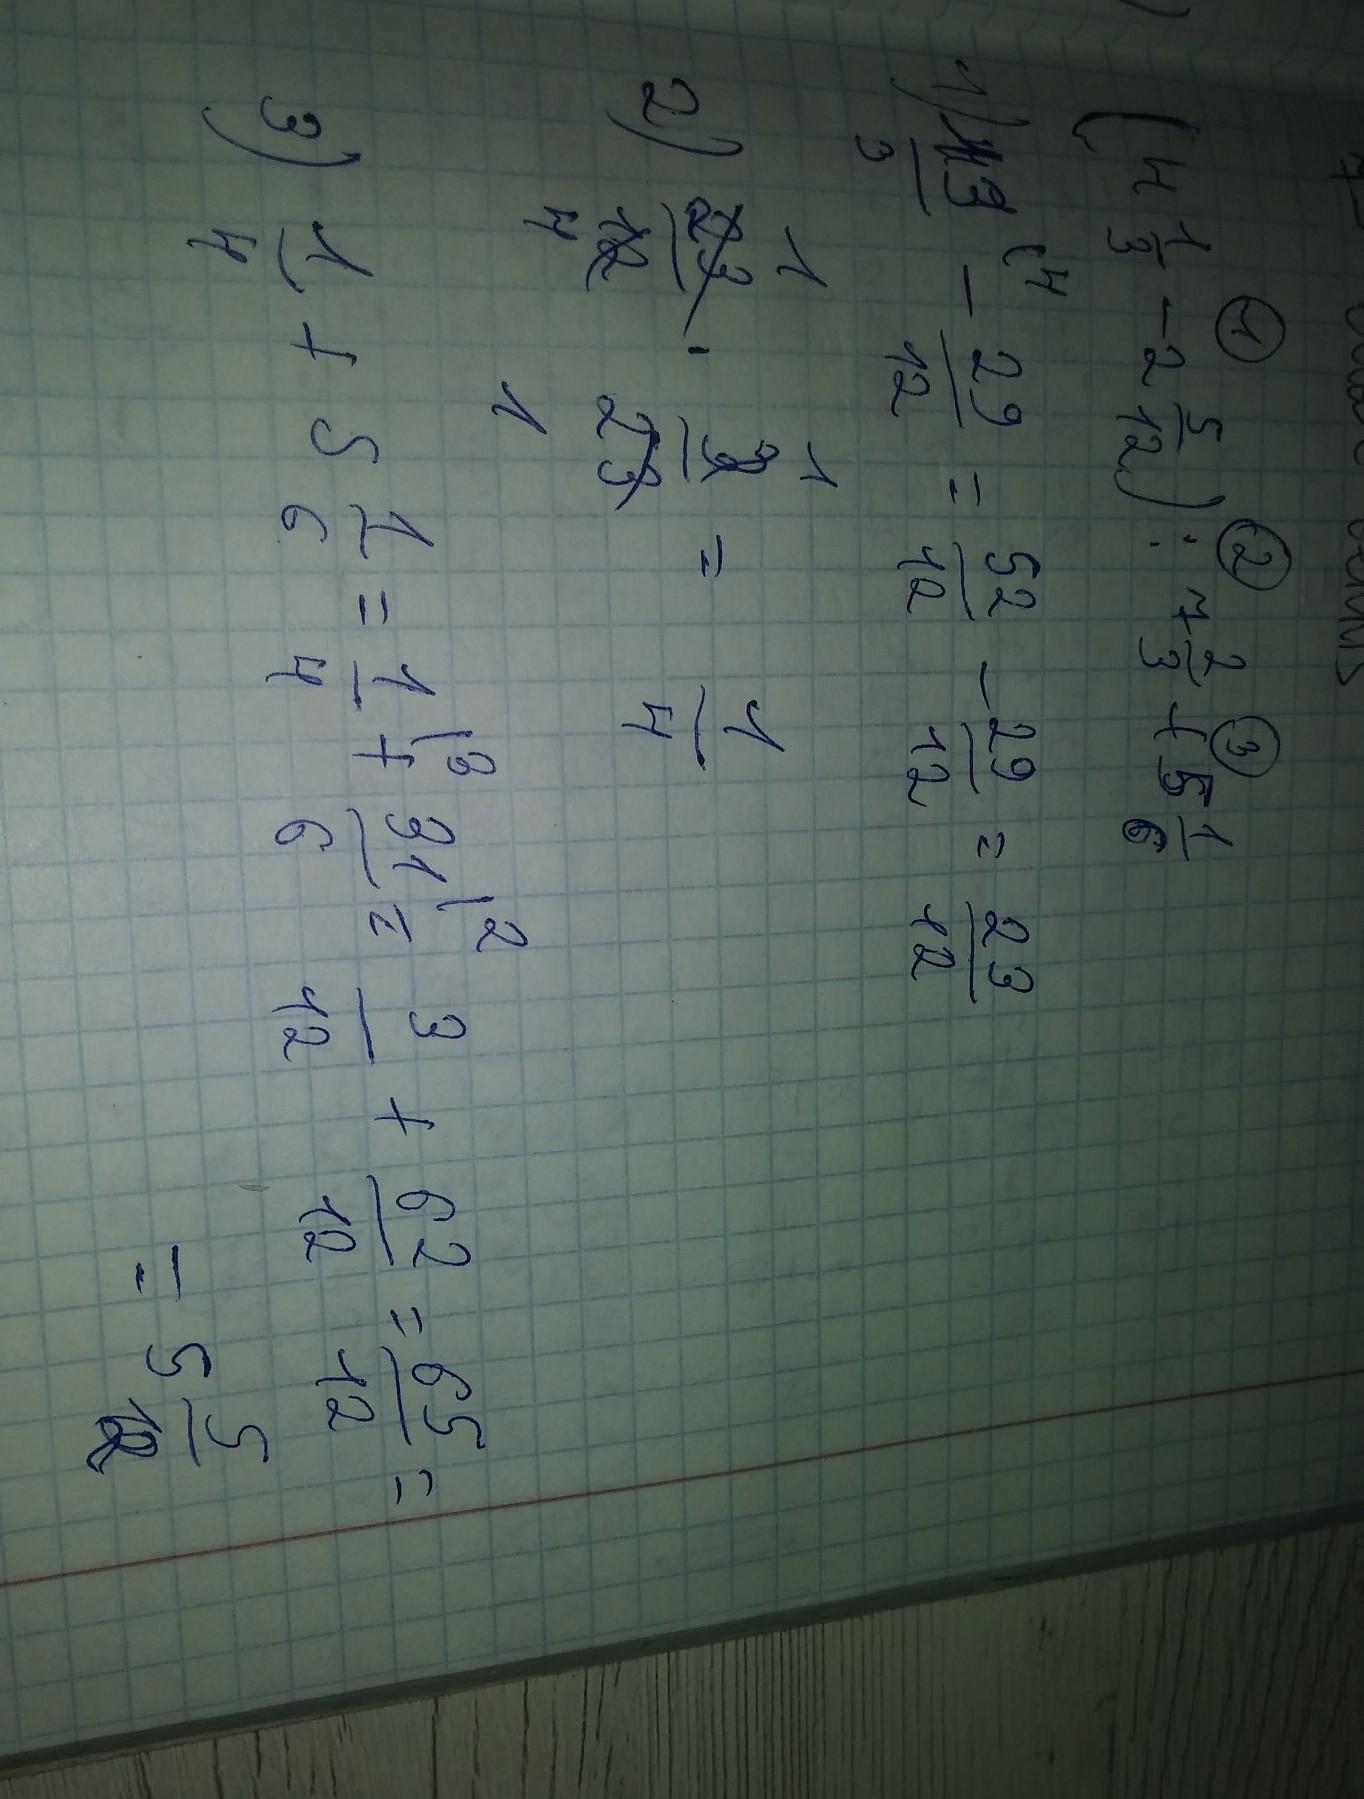 (4 1/3 - 2 5/12) : 7 2/3 + 5 1/6
① ② ③
1) 13/3 (4 - 29/12 = 52/12 - 29/12 = 23/12
2) 23/12 · 3/23 = 1/4
1 1
4 1
3) 1/4 + 5 1/6 = 1/4 \3 + 31/6 \2 = 3/12 + 62/12 = 65/12 =
= 5 5/12